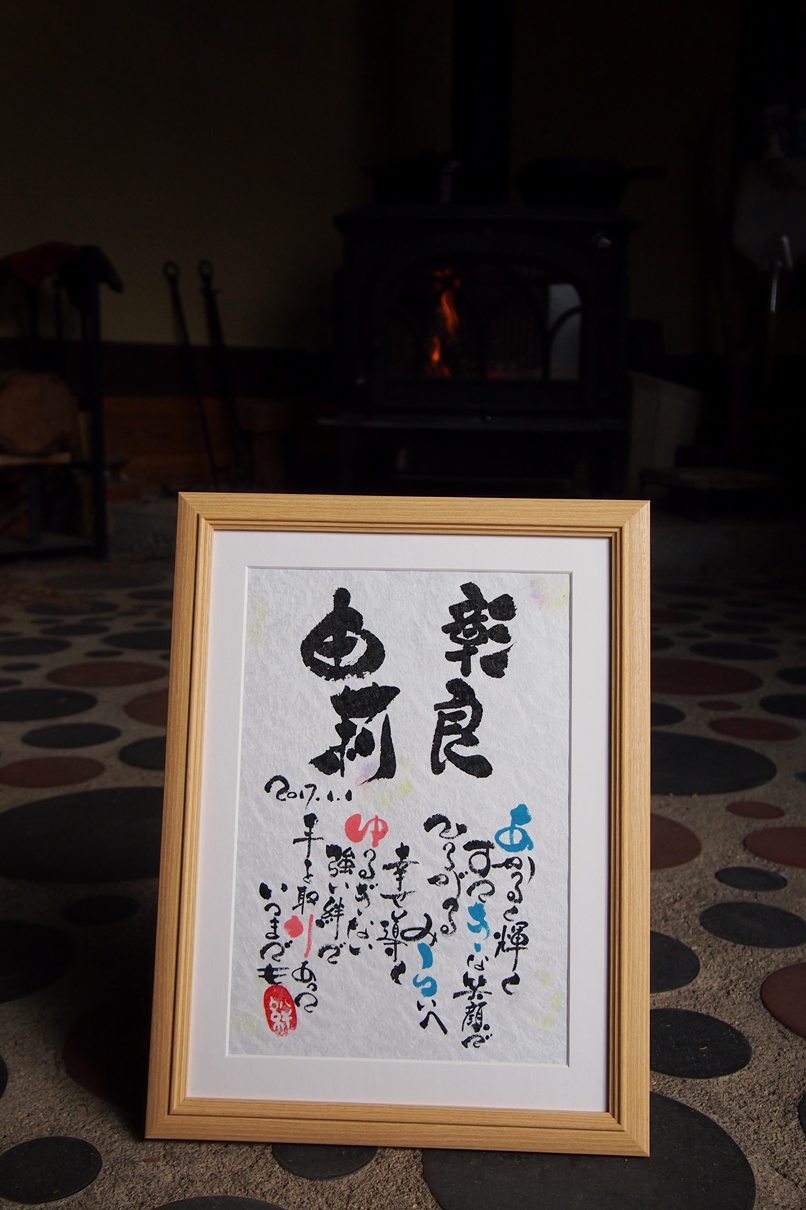 彰良
由莉
あかるく輝く
すてきな笑顔で
ひろがる
みらいへ
幸せ導く
ゆるぎない
強い絆で
手を取りあって
いつまでも
2017.1.1